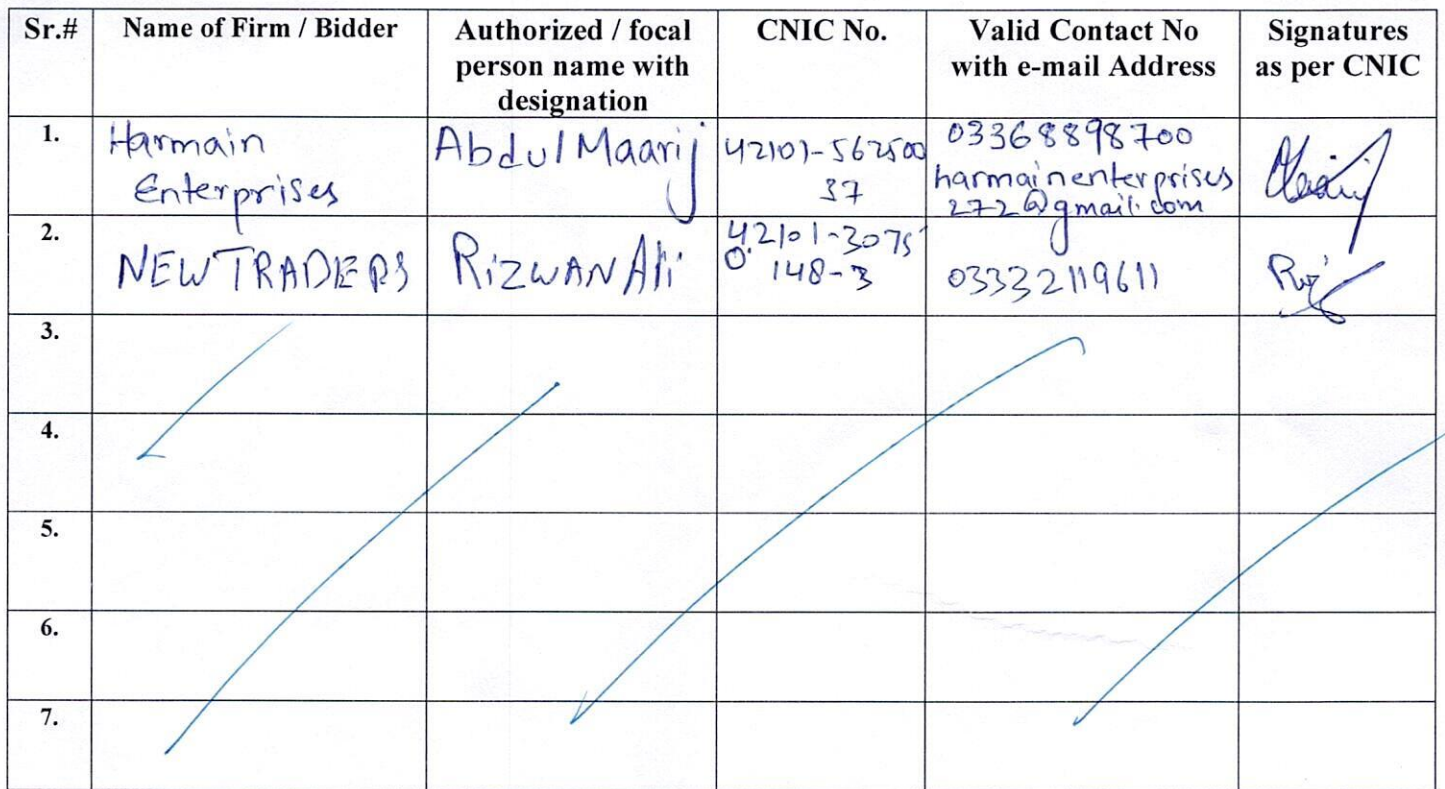 Sr.# Name of Firm / Bidder Authorized / focal person name with designation CNIC No. Valid Contact No with e-mail Address Signatures as per CNIC
1. Harmain Enterprises Abdul Maarij 42101-562500 37 03368898700 harmainenterprises 272@gmail.com
2. NEW TRADERS RIZWAN Ali 42101-3075 0. 148-3 03332119611
3.
4.
5.
6.
7.